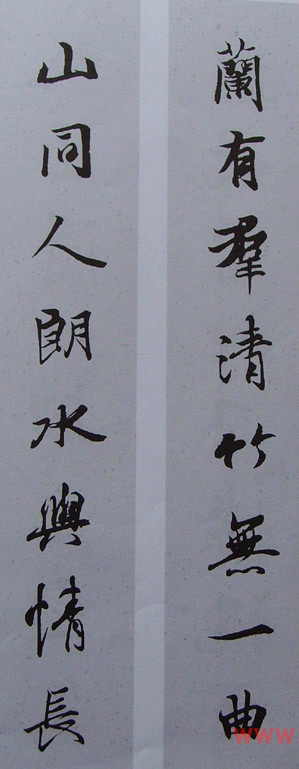 蘭有羣清竹無一曲
山同人朗水與情長
www